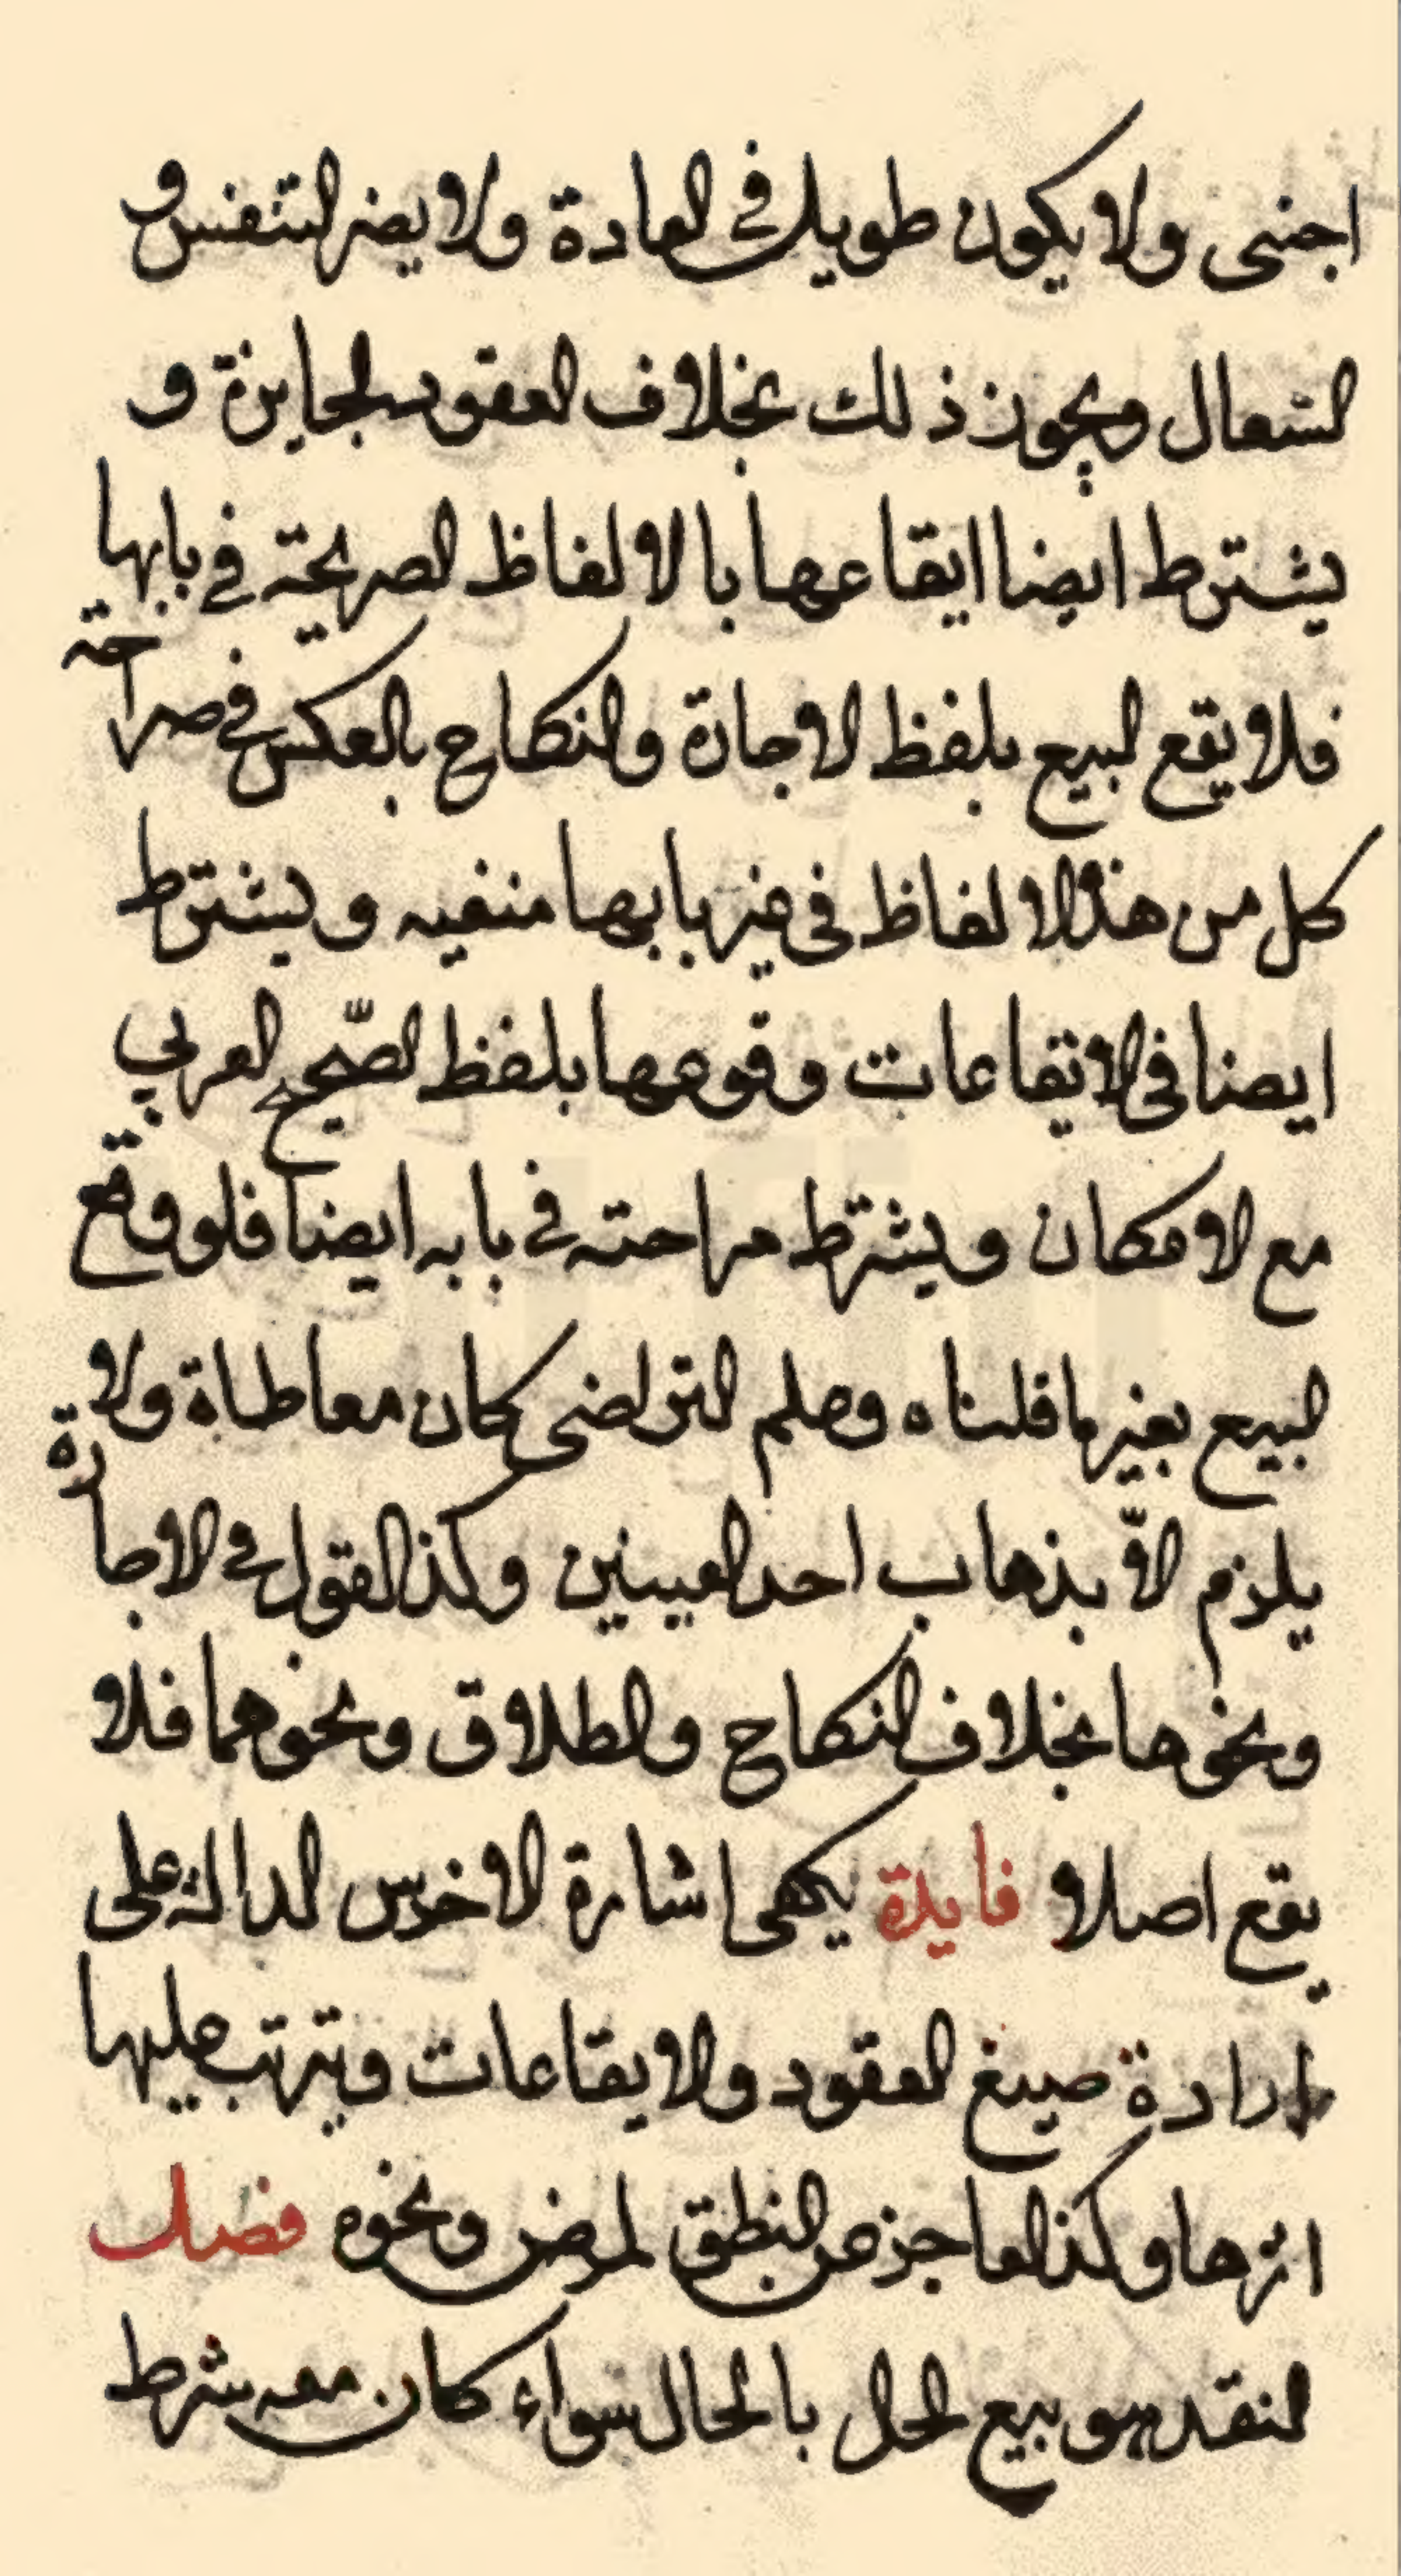 اجنبى ولا يكون طويلا فى العادة ولا يضر التنفس و
السعال ويجوز ذلك بخلاف العقود الجايزة و
يشترط ايضا ايقاعها بالالفاظ الصريحة فى بابها
فلا يقع البيع بلفظ الاجارة والنكاح بالعكس فصراحته
كل من هذا الالفاظ فى غير بابها منفيه ويشترط
ايضا فى الايقاعات وقوعها بلفظ الصّحيح العربي
مع الامكان ويشترط صراحته فى بابه ايضا فلو وقع
البيع بغير ما قلناه وعلم التراضى كان معاطاة ولا
يلزم الاّ بذهاب احد العينين وكذا القول فى الاجارة
ونحوها بخلاف النكاح والطلاق ونحوهما فلا
يقع اصلا و فايدة يكفى اشارة الاخرس الدالة على
ارادة صيغ العقود والايقاعات ويترتب عليها
اثرها وكذا العاجز عن النطق لمرض ونحوه فصل
النقد هو بيع الحال بالحال سواء كان معه شرط